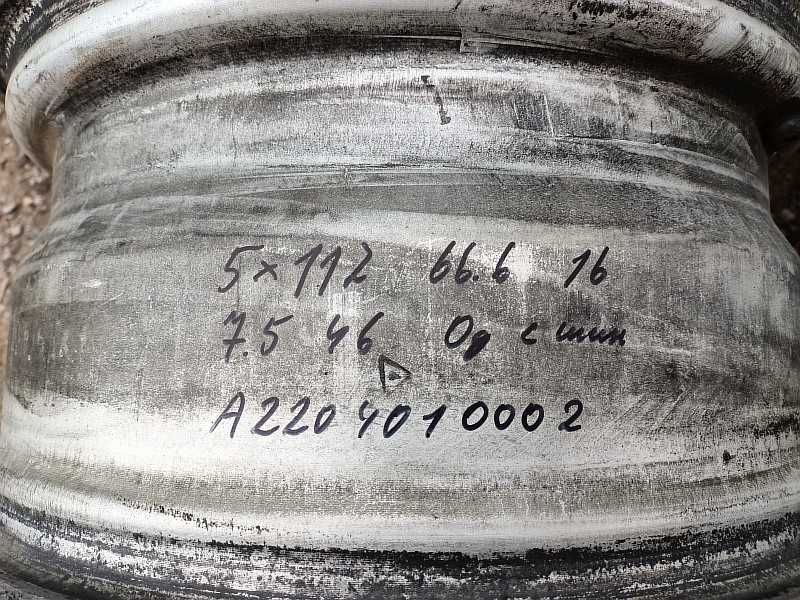 5×112 66.6 16
7.5 46 Од с шин
A220 401 0002